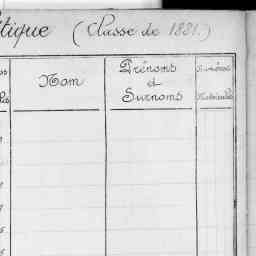 tique (Classe de 1881.)
Nom
Prénoms
et
Surnoms
Numéros
Matricules